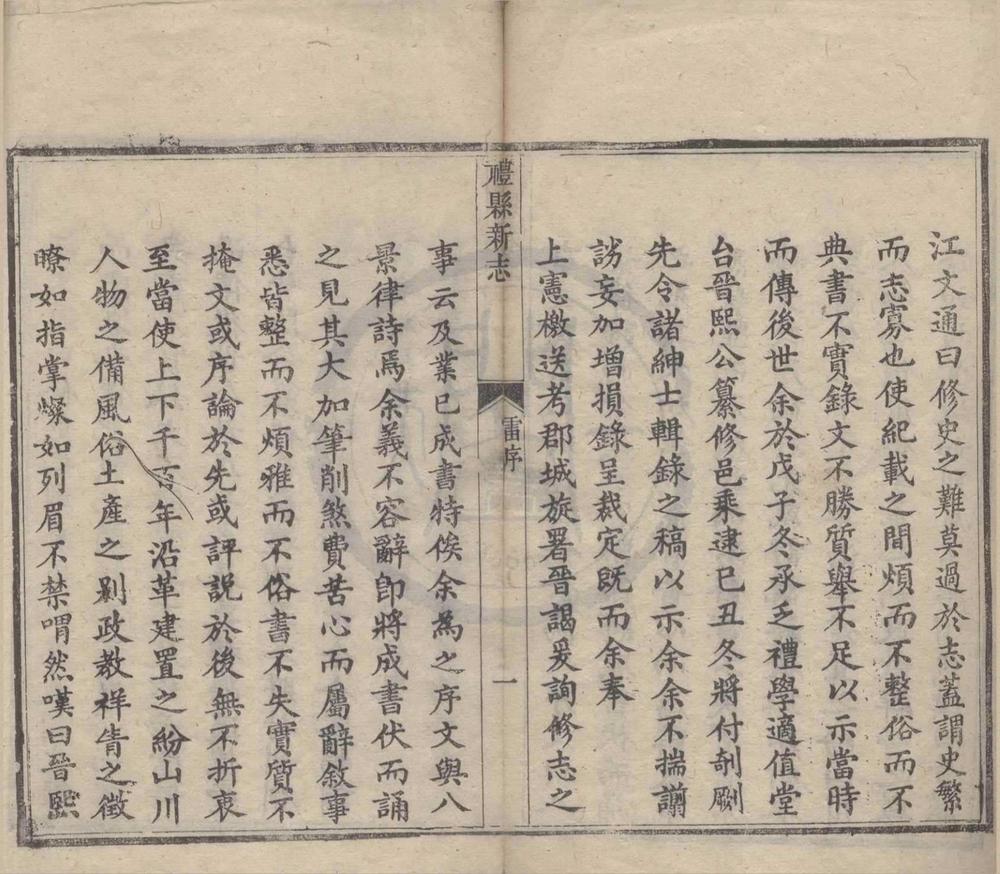 江文通曰修史之難莫過於志蓋謂史繁
而志寡也使紀載之間煩而不整俗而不
典書不實錄文不勝質舉不足以示當時
而傳後世余於戊子冬承乏禮學適值堂
台晉熙公纂修邑乘逮己丑冬將付剞劂
先令諸紳士輯錄之稿以示余余不揣譾
謭妄加增損錄呈裁定既而余奉
上憲檄送考郡城旋署晉謁爰詢修志之
禮縣新志
雷序
一
事云及業已成書特俟余為之序文與八
景律詩焉余義不容辭即將成書伏而誦
之見其大加筆削煞費苦心而屬辭敘事
悉皆整而不煩雅而不俗書不失實質不
掩文或序論於先或評說於後無不折衷
至當使上下千百年沿革建置之紛山川
人物之備風俗土產之別政教祥眚之徵
瞭如指掌燦如列眉不禁喟然嘆曰晉熙